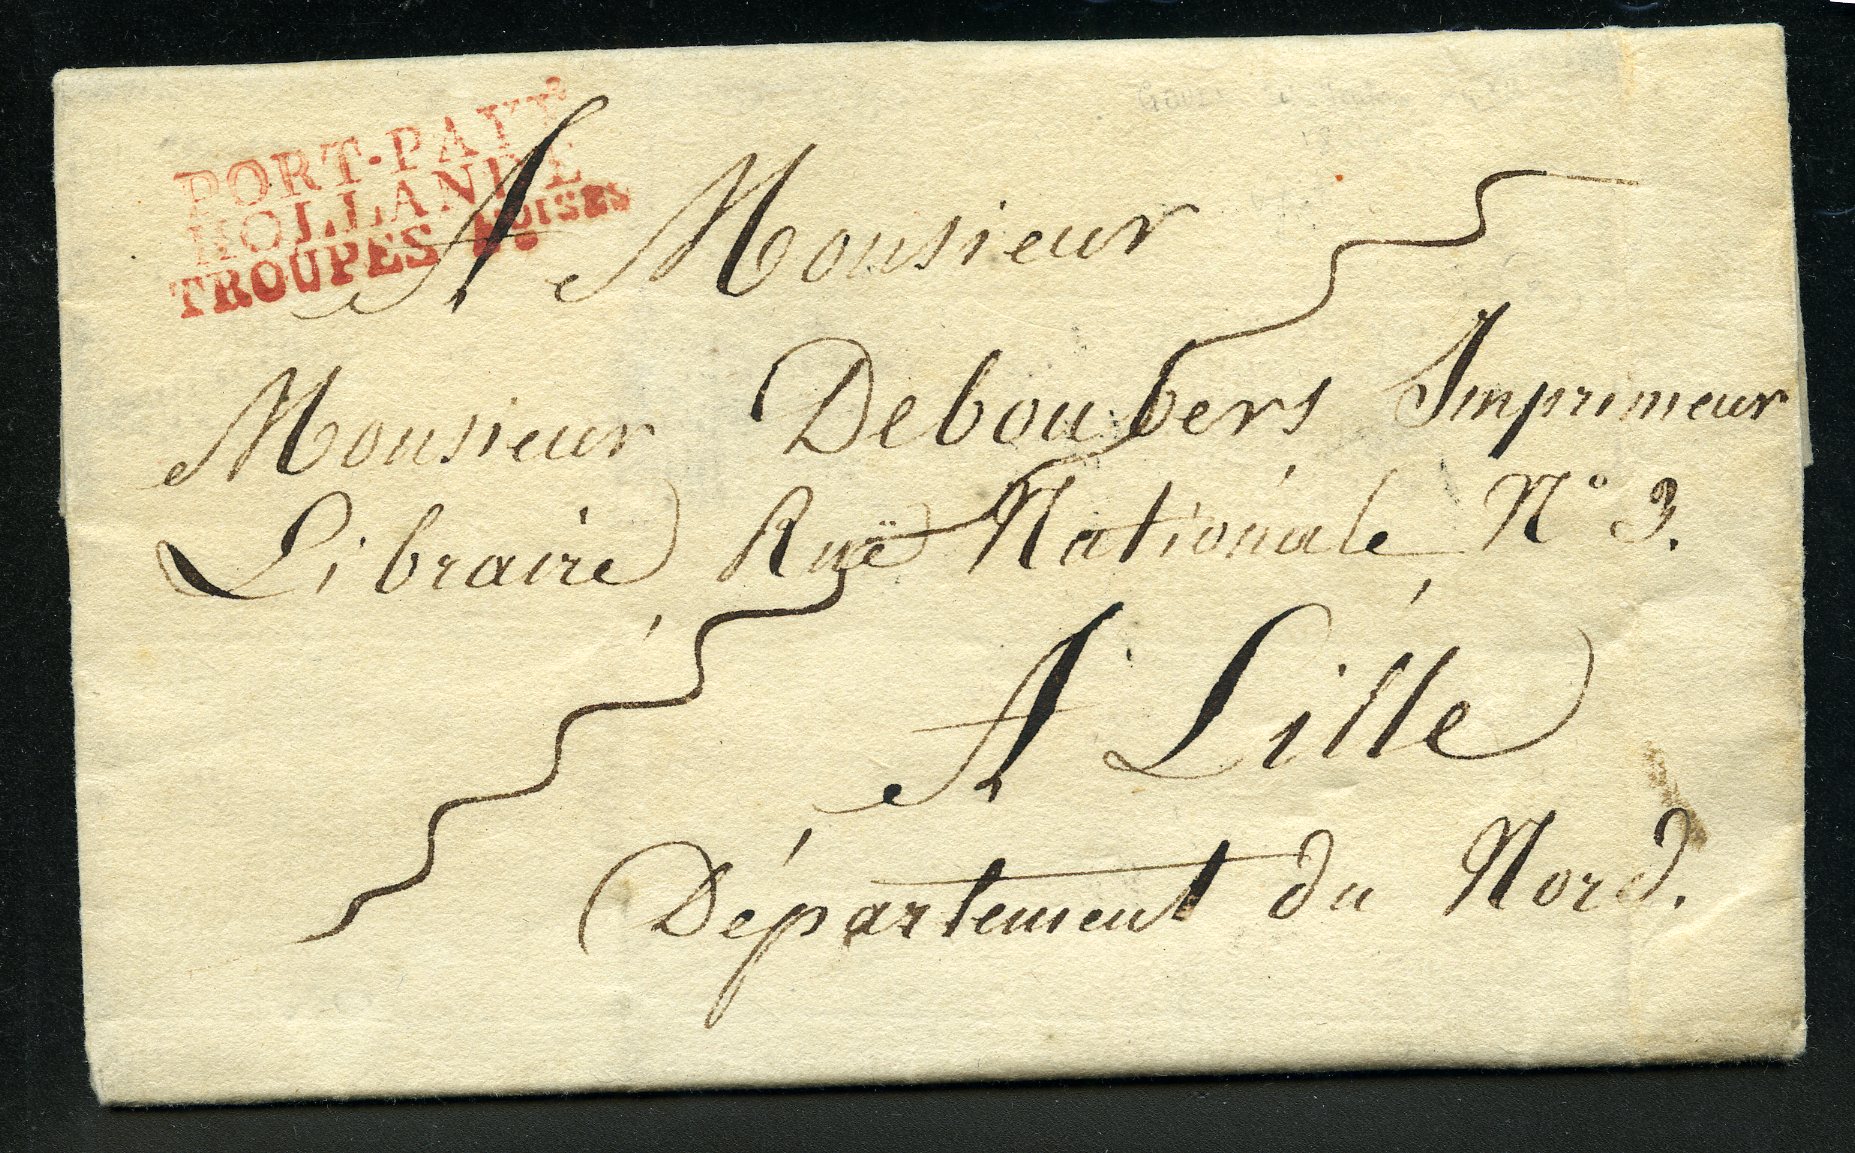 PORT-PAYÉ
HOLLANDE
TROUPES
A Monsieur
Monsieur Deboubers Imprimeur
Libraire, Ruë Nationale N° 3.
A Lille
Département du Nord.